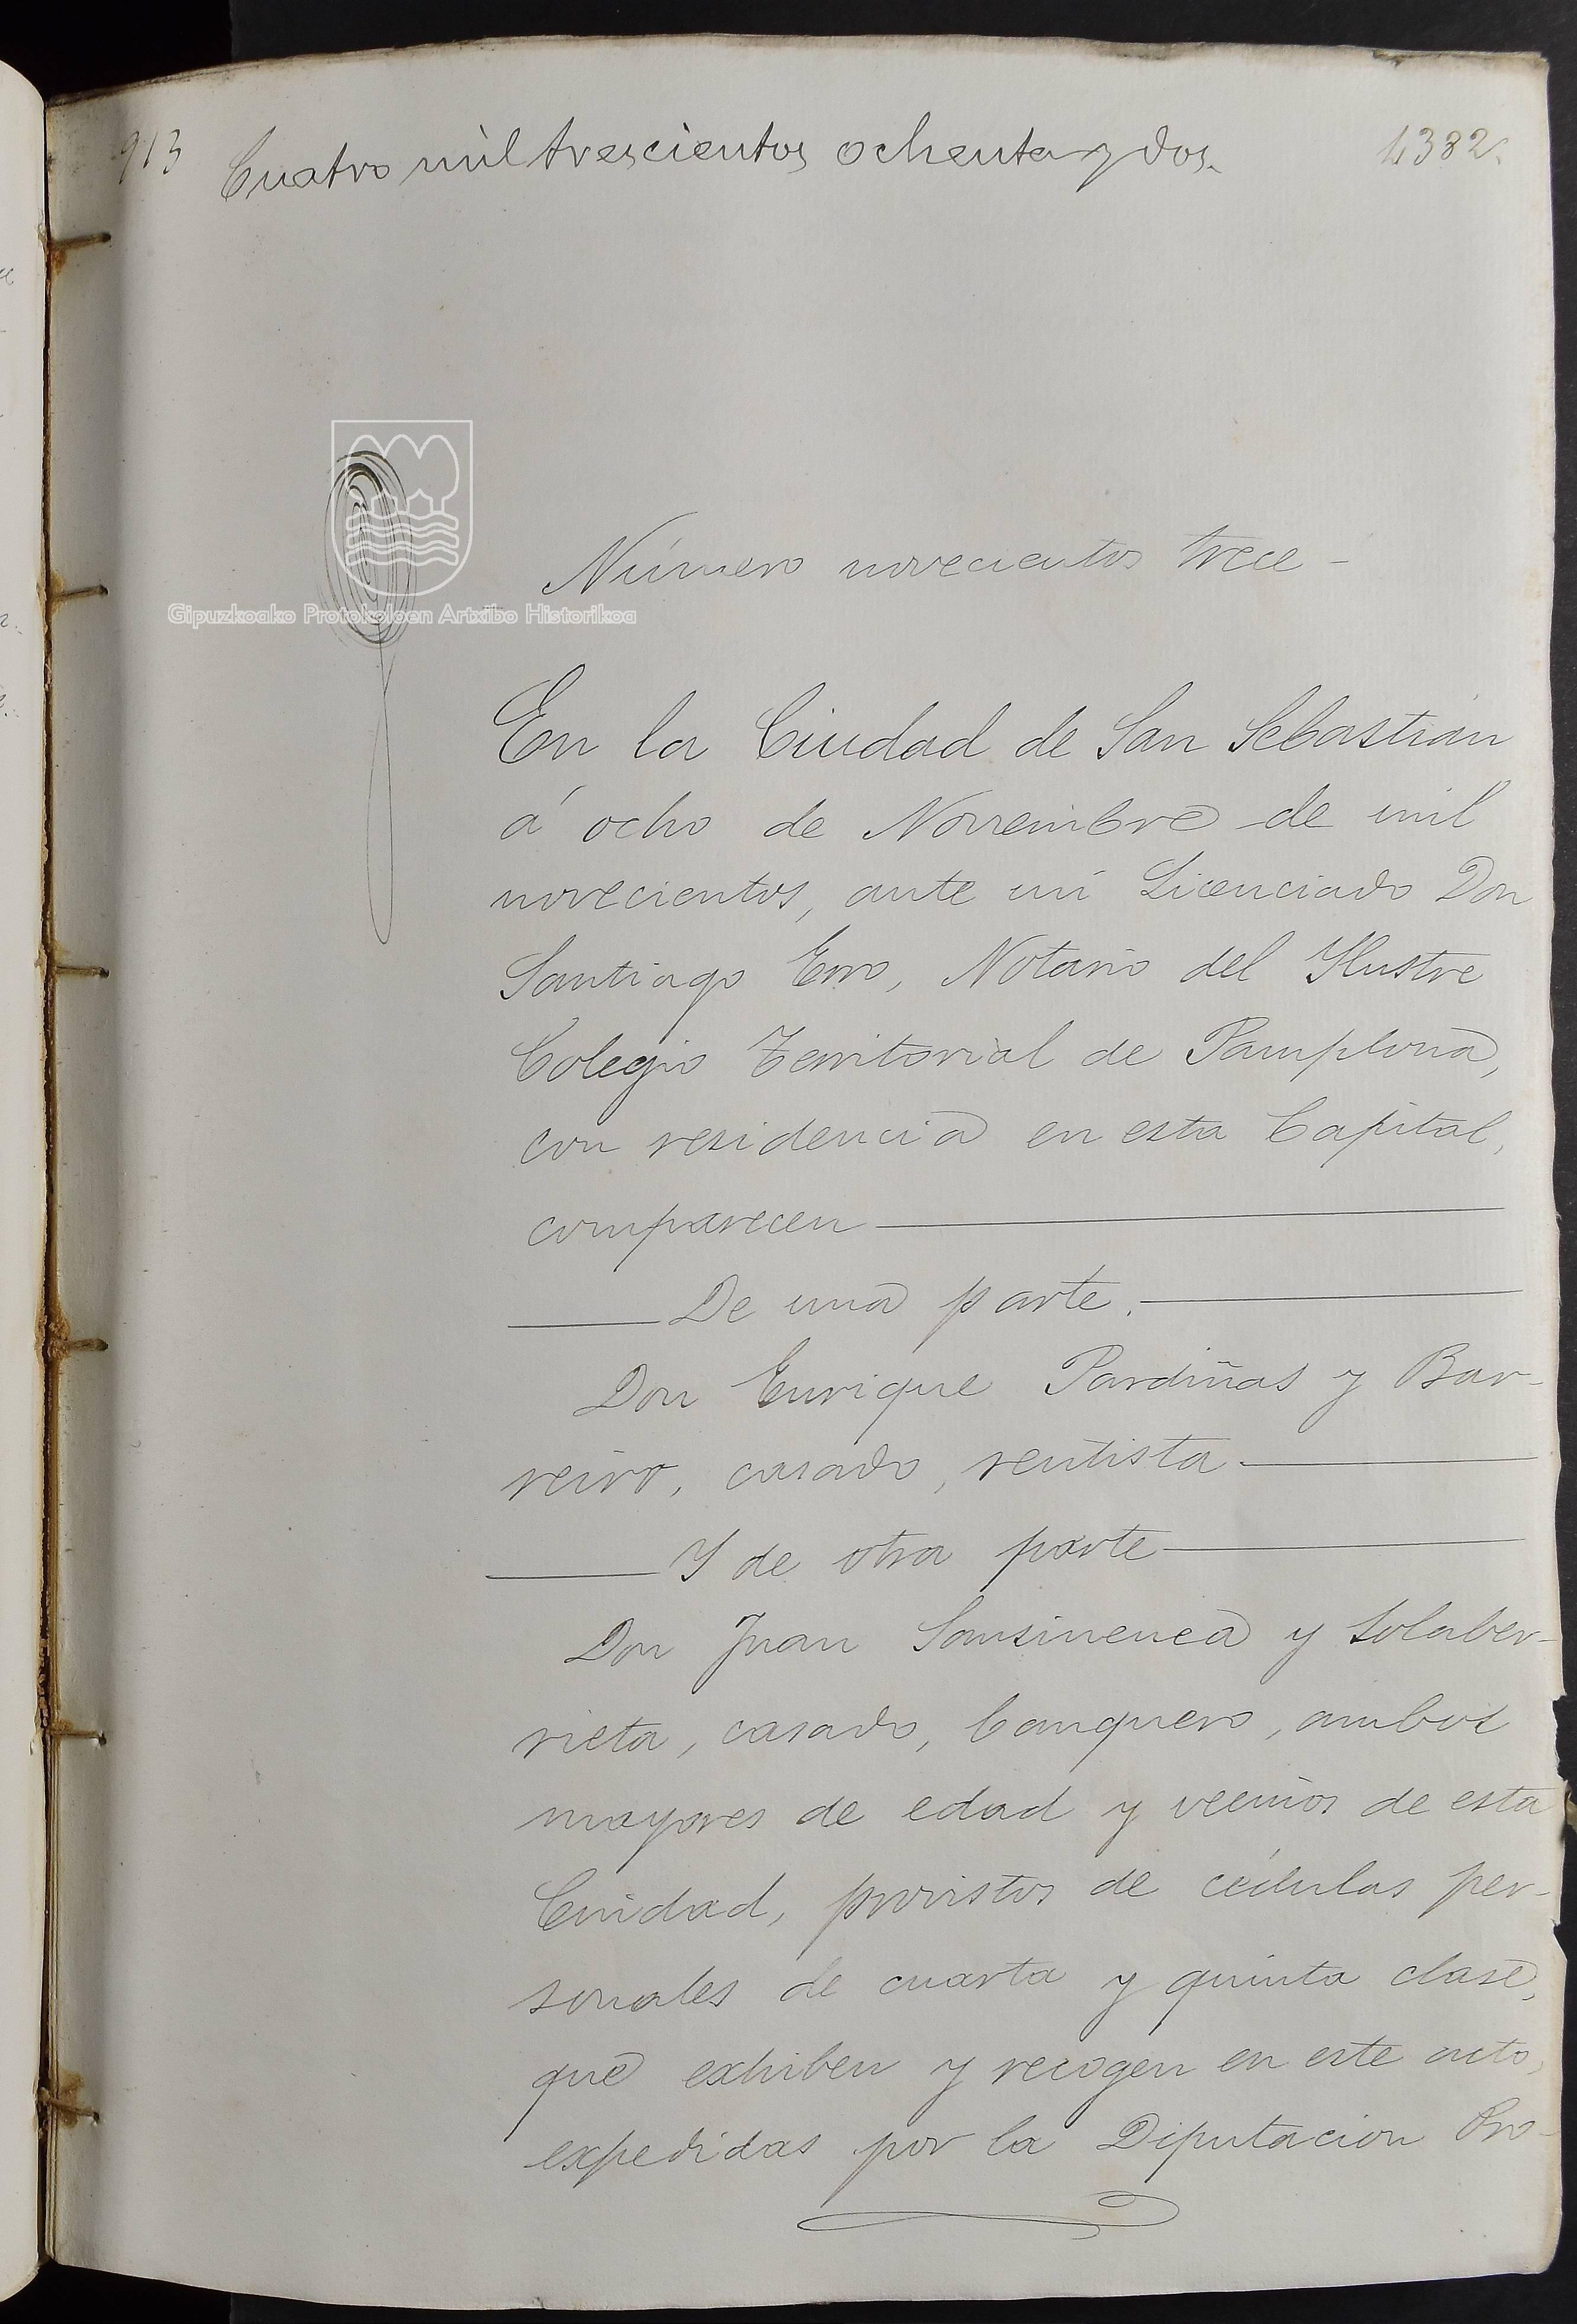 913 Cuatro mil trescientos ochenta y dos. 4382.
Gipuzkoako Protokoloen Artxibo Historikoa
Número novecientos trece -
En la Ciudad de San Sebastián
á ocho de Noviembre de mil
novecientos, ante mi Licenciado Don
Santiago Erro, Notario del Ilustre
Colegio Territorial de Pamplona,
con residencia en esta Capital,
comparecen
De una parte.
Don Enrique Pardiñas y Bar-
reiro, casado, rentista
Y de otra parte
Don Juan Sansinenea y Solaber-
rieta, casado, banquero, ambos
mayores de edad y vecinos de esta
Ciudad, provistos de cédulas per-
sonales de cuarta y quinta clase,
que exhiben y recogen en este acto,
expedidas por la Diputacion Pro-